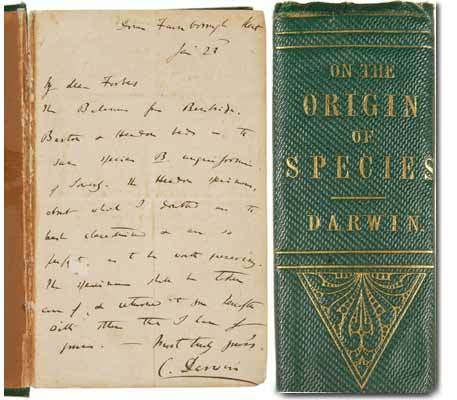 Down Farnborough Kent
Jan 23
My dear Forbes
The Balanus from Bembridge,
Barton & Hordon beds is the
same species B. unguiformis
of Sowerby. The Hordon specimens,
about which I doubted are the
most
perfect, as to be worth preserving.
The specimens shall be taken
care of, & returned to you
with
yours. — Most truly yours,
C. Darwin
ON THE
ORIGIN
OF
SPECIES
DARWIN.